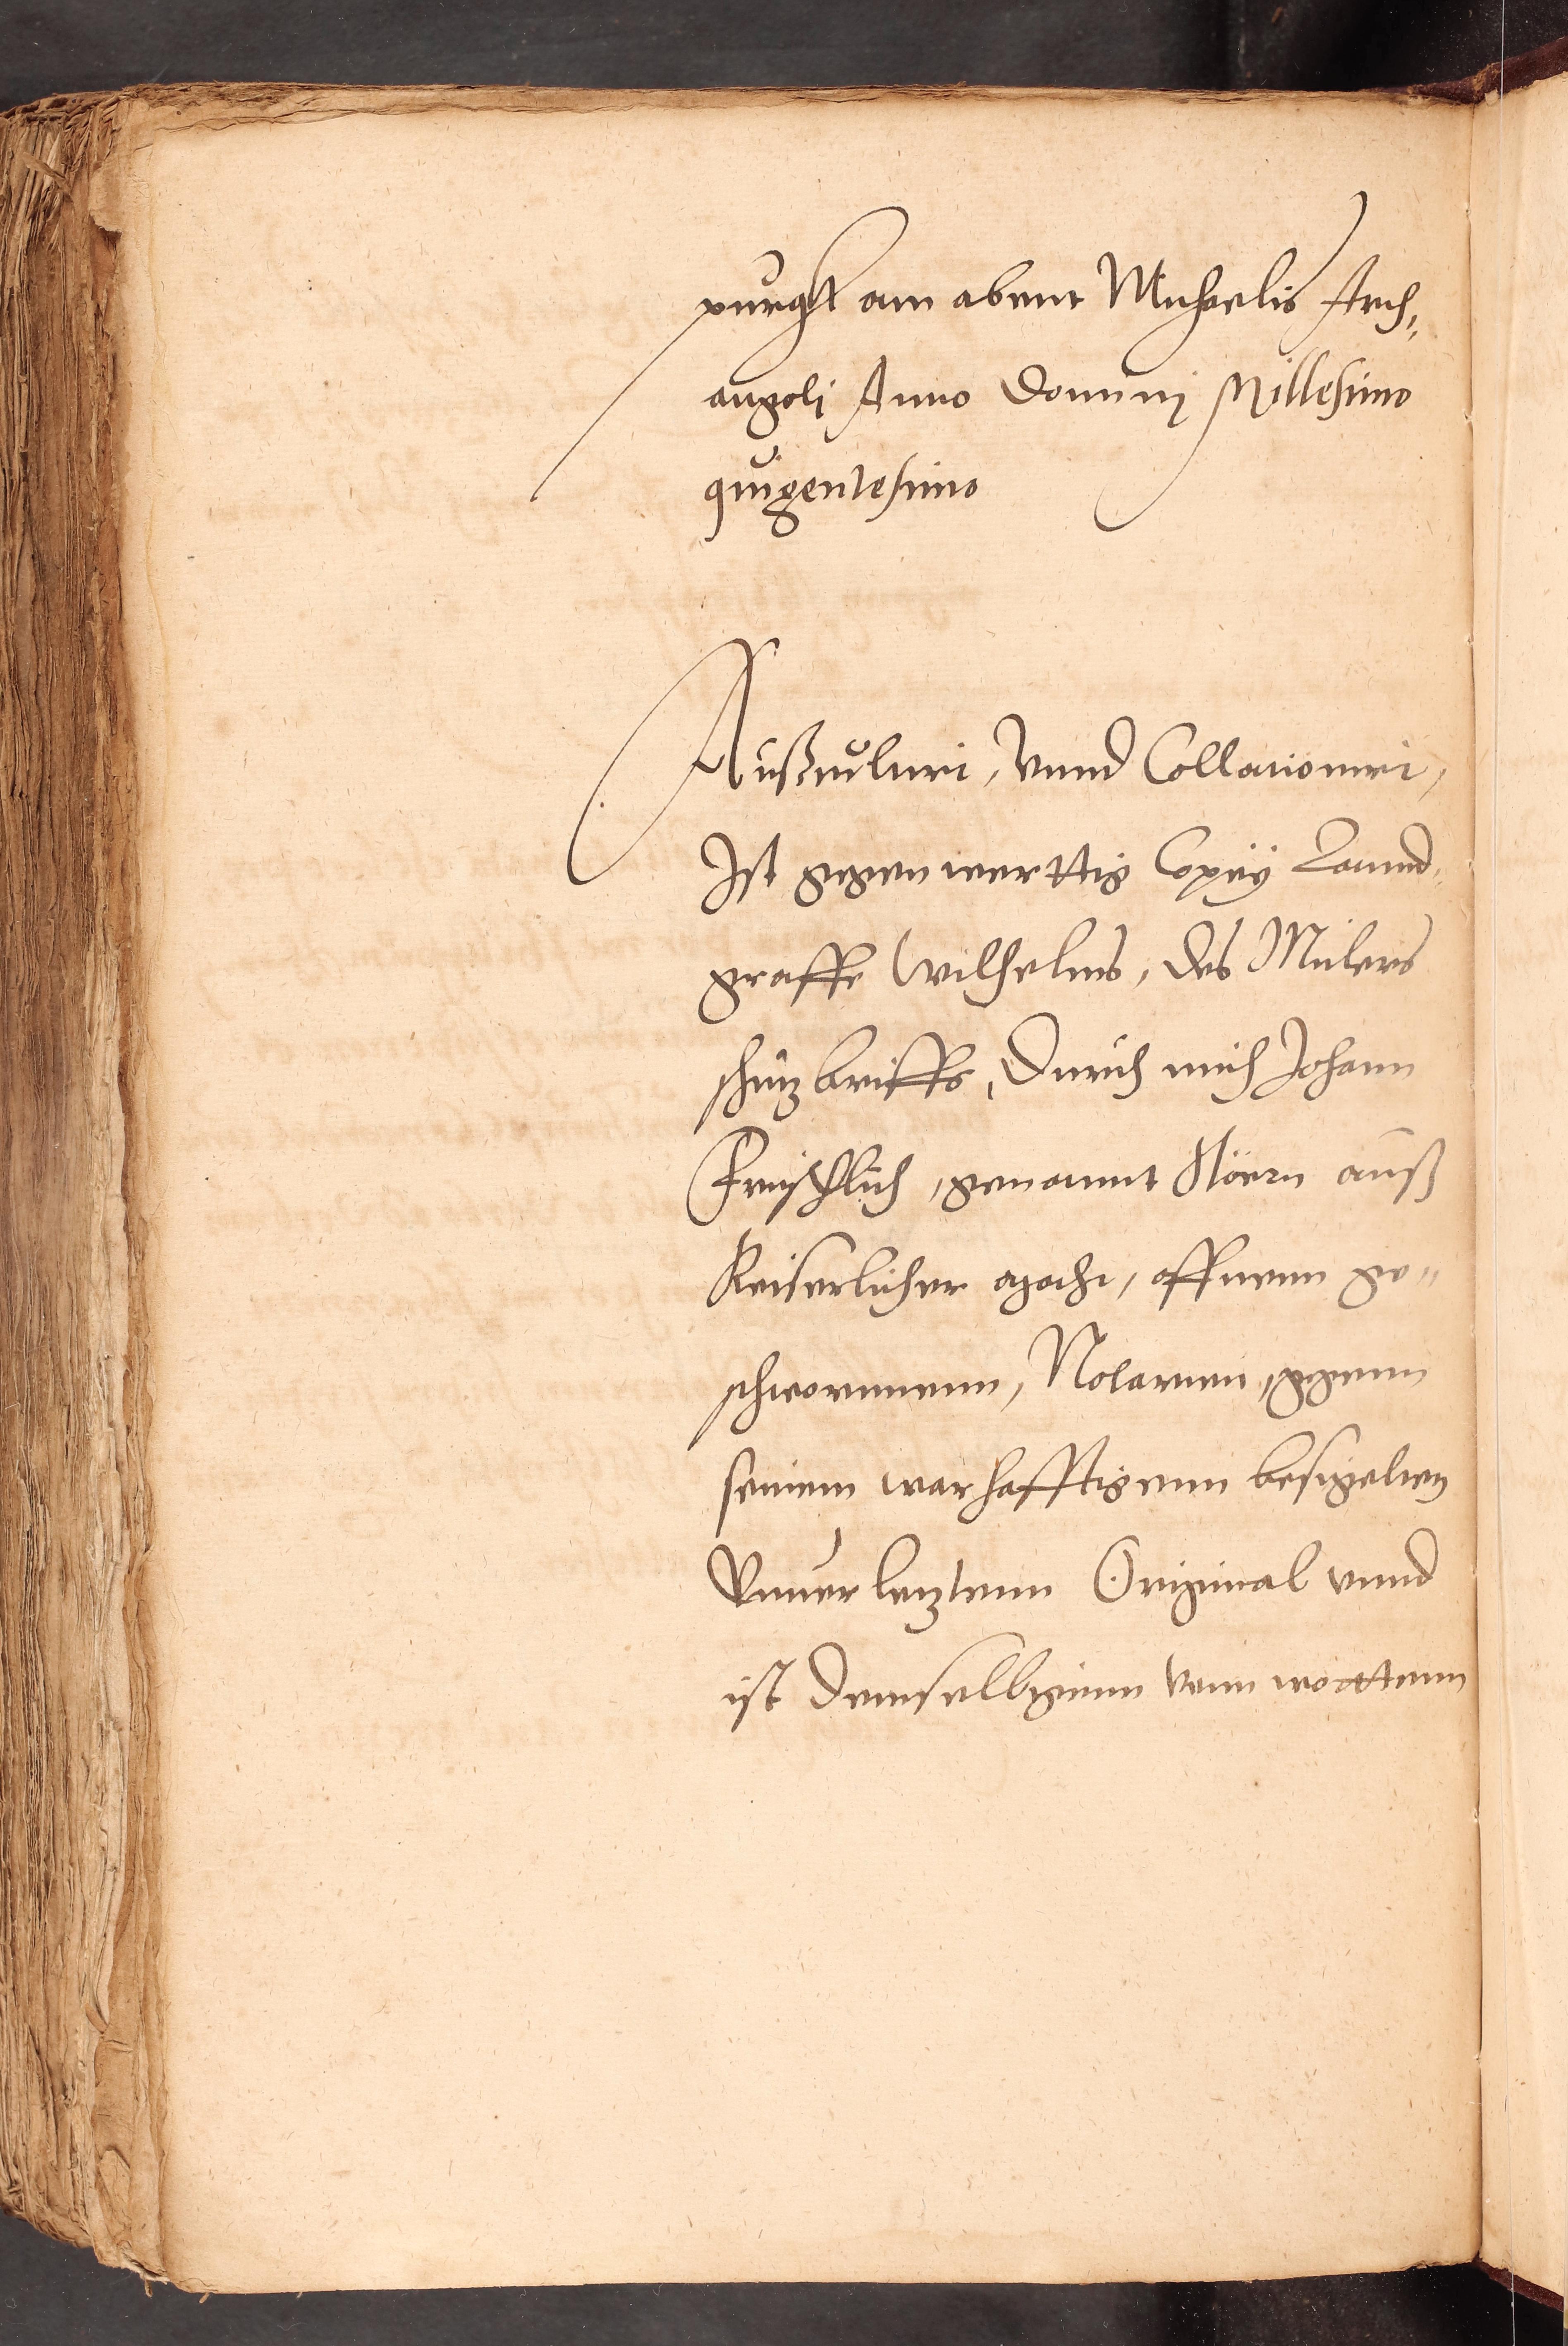 purgk am abent Michaelis Arch„
angeli Anno Dominj Millesimo
quigentesimo
Außculiert, Vnnd Collationiert,
Ist gegenwerttig Copeÿ Lannd„
graffe Wilhelms, des Mitlers
schutzbrieffs, Durch mich Johann
genannt auß
Keiserlicher macht, offnem ge„
schwornnenn, Notarienn, gegenn
seinem warhafftigenn besigelten
Vnuerletztenn Original vnnd
ist demselbigenn vonn worttenn